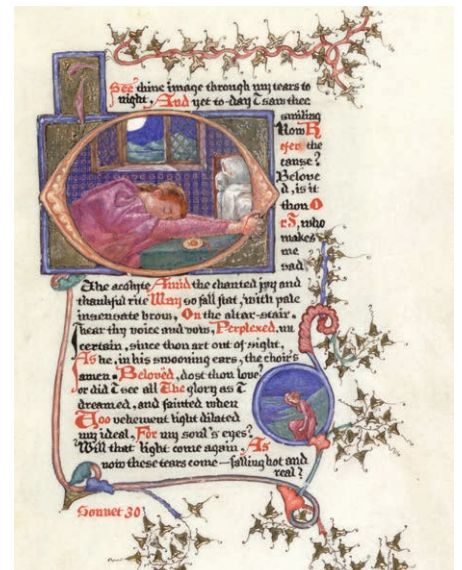 I
See thine image through my tears to
night, And yet to-day I saw thee
smiling
How R
efer the
cause?
Belove
d, is it
thou O
r I, who
makes
me
sad
The acolyte Amid the chanted joy and
thankful rite May so fall flat, with pale
insensate brow, On the altar-stair.
I hear thy voice and vow, Perplexed, un
certain, since thou art out of sight,
As he, in his swooning ears, the choir's
amen. Beloved, dost thou love?
or did I see all The glory as I
dreamed, and fainted when
Too vehement light dilated
my ideal, For my soul's eyes?
Will that light come again, As
now these tears come—falling hot and
real?
Sonnet 30